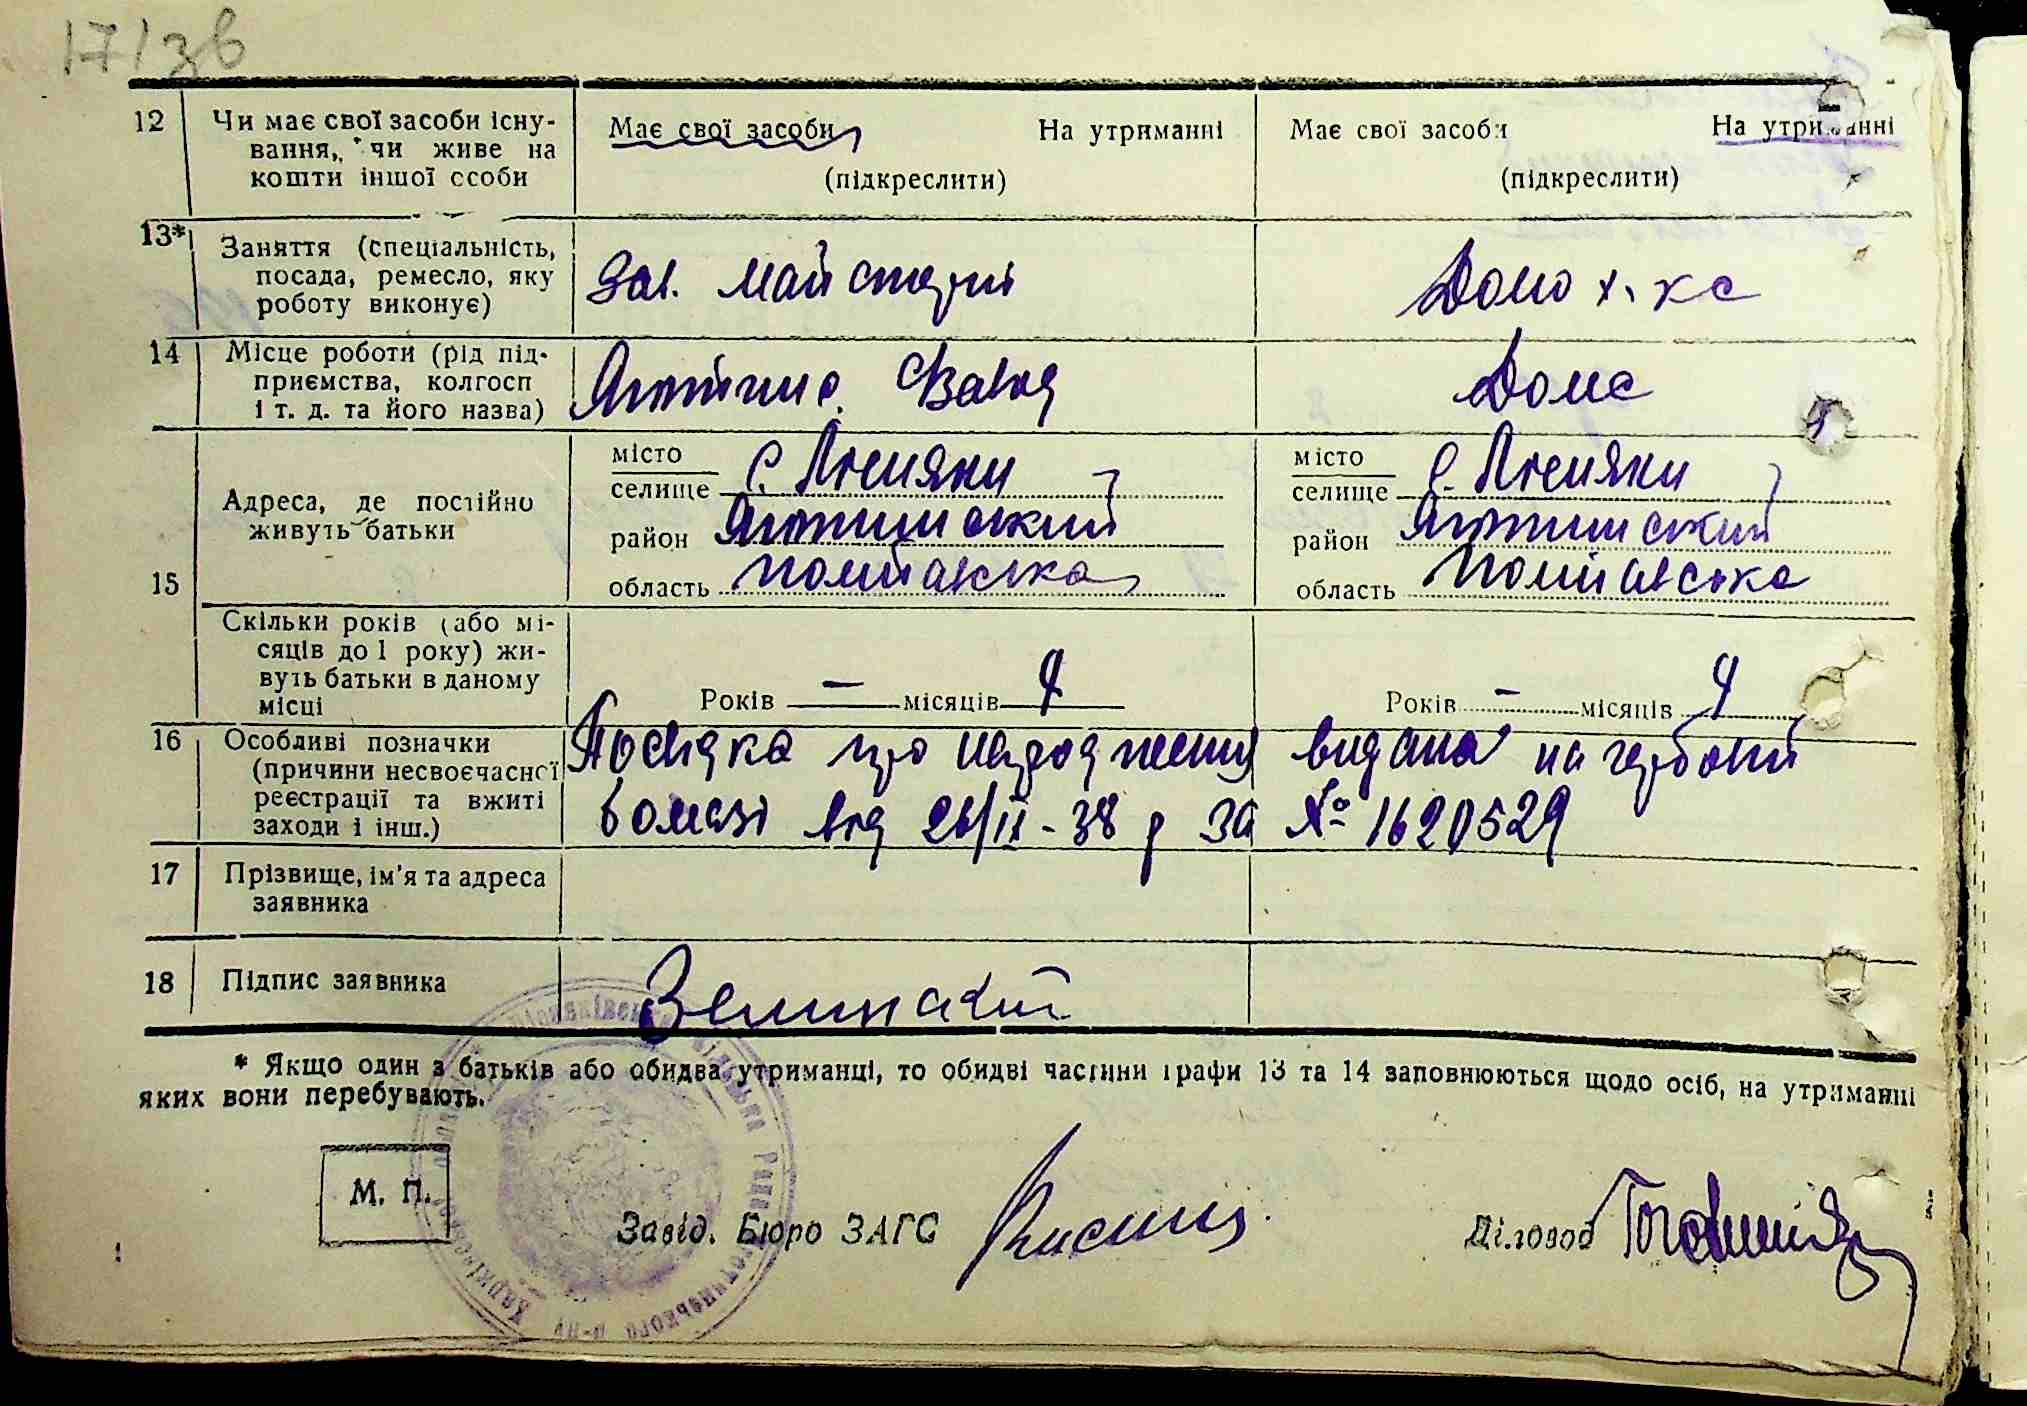 17/зв
12 Чи має свої засоби існу-
вання, чи живе на
кошти іншої ссоби
Має свої засоби На утриманні
(підкреслити)
Має свої засоби На утриманні
(підкреслити)
13* Заняття (спеціальність,
посада, ремесло, яку
роботу виконує)
Зав. майстерні
Домо х. ка
14 Місце роботи (рід під-
приємства, колгосп
і т. д. та його назва)
Яготинс.
Дома
15 Адреса, де постійно
живуть батьки
місто
селище с. Лисняки
район Яготинський
область Полтавська
місто
селище с. Лисняки
район Яготинський
область Полтавська
Скільки років (або мі-
сяців до 1 року) жи-
вуть батьки в даному
місці
Років – місяців 4
Років – місяців 4
16 Особливі позначки
(причини несвоєчасної
реєстрації та вжиті
заходи і інш.)
Посвідка про народження видана на гербовій
бомазі від 26/II-38 р за № 1620529
17 Прізвище, ім'я та адреса
заявника
18 Підпис заявника
Зелинский
* Якщо один з батьків або обидва утриманці, то обидві частини графи 13 та 14 заповнюються щодо осіб, на утриманні
яких вони перебувають.
М. П.
Завід. Бюро ЗАГС
Діловод